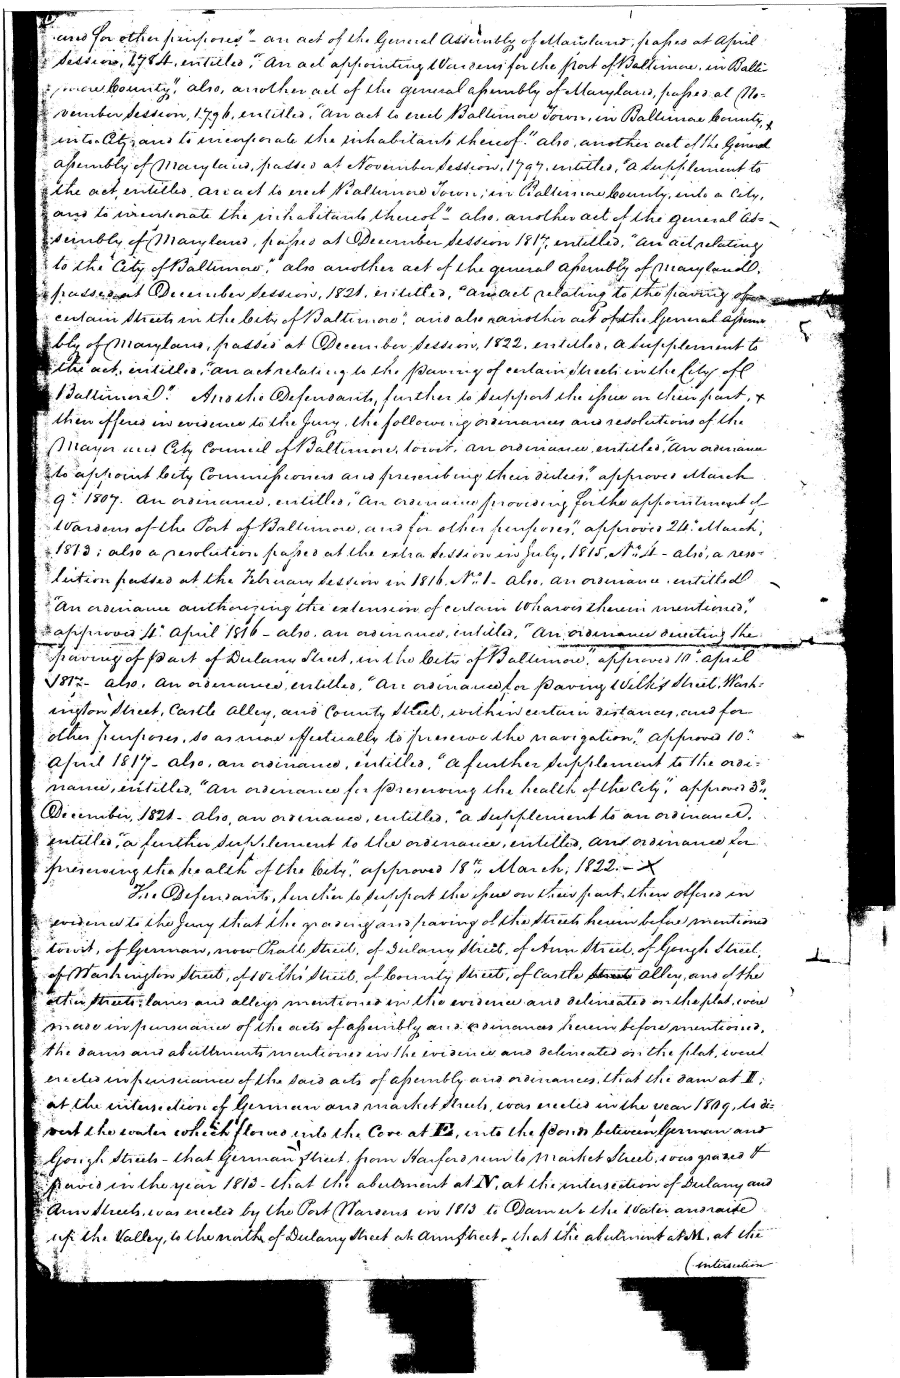 and for other purposes" - an act of the General Assembly of Maryland, passed at April
Session, 1784, entitled, "An act appointing Wardens for the Port of Baltimore, in Balti-
more County," also, another act of the general assembly of Maryland, passed at No-
vember Session, 1796, entitled, "An act to erect Baltimore Town, in Baltimore County, x
into a City, and to incorporate the inhabitants thereof." also, another act of the General
assembly of Maryland, passed at November Session, 1797, entitled, "a supplement to
the act, entitled, an act to erect Baltimore Town, in Baltimore County, into a City,
and to incorporate the inhabitants thereof" - also, another act of the general As-
sembly of Maryland, passed at December Session 1817, entitled, "an act relating
to the City of Baltimore", also another act of the general assembly of Maryland,
passed at December Session, 1821, entitled, "an act relating to the paving of
certain Streets in the City of Baltimore", and also another act of the General assem-
bly of Maryland, passed at December Session, 1822, entitled, a supplement to
the act, entitled, "an act relating to the paving of certain Streets in the City of
Baltimore". And the Defendants, further to support the issue on their part, x
then offered in evidence to the Jury, the following ordinances and resolutions of the
Mayor and City Council of Baltimore, towit, an ordinance, entitled, "an ordinance
to appoint City Commissioners and prescribing their duties," approved March
9th 1807. an ordinance, entitled, "An ordinance providing for the appointment of
Wardens of the Port of Baltimore, and for other purposes," approved 24th March,
1813; also a resolution passed at the extra Session in July, 1815, No. 4 - also, a reso-
lution passed at the February Session in 1816, No. 1 - also, an ordinance, entitled
"An ordinance authorizing the extension of certain Wharves therein mentioned,"
approved 4th April 1816 - also, an ordinance, entitled, "An ordinance directing the
paving of part of Dulany Street, in the City of Baltimore," approved 10th april
1817 - also, an ordinance, entitled, "An ordinance for paving Wilks Street, Wash-
ington Street, Castle Alley, and County Street, within certain distances, and for
other purposes, so as more effectually to preserve the navigation," approved 10th
April 1817 - also, an ordinance, entitled, "a further supplement to the ordi-
nance, entitled, "An ordinance for preserving the health of the City", approved 3d
December, 1821 - also, an ordinance, entitled, "a supplement to an ordinance,
entitled, "a further supplement to the ordinance, entitled, an ordinance for
preserving the health of the City," approved 18th March, 1822. - X
The Defendants, further to support the issue on their part, then offered in
evidence to the Jury that the grading and paving of the Streets herein before mentioned
towit, of German, now Pratt Street, of Dulany Street, of Ann Street, of Gough Street,
of Washington Street, of Wilks Street, of County Street, of Castle Street Alley, and of the
other Streets, lanes and alleys mentioned in the evidence and delineated on the plat, were
made in pursuance of the acts of assembly and ordinances herein before mentioned,
the dams and abuttments mentioned in the evidence and delineated on the plat, were
erected in pursuance of the said acts of assembly and ordinances, that the dam at I;
at the intersection of German and market Streets, was erected in the year 1809, to di-
vert the water which flowed into the Cove at E, into the pond between German and
Gough Streets - that German Street, from Harford run to Market Street, was graded &
paved in the year 1813 - that the abutment at N, at the intersection of Dulany and
Ann Streets, was erected by the Port Wardens in 1813 to Dam up the Water and raise
up the Valley, to the north of Dulany Street at Ann Street - that the abutment at M, at the
(intersection